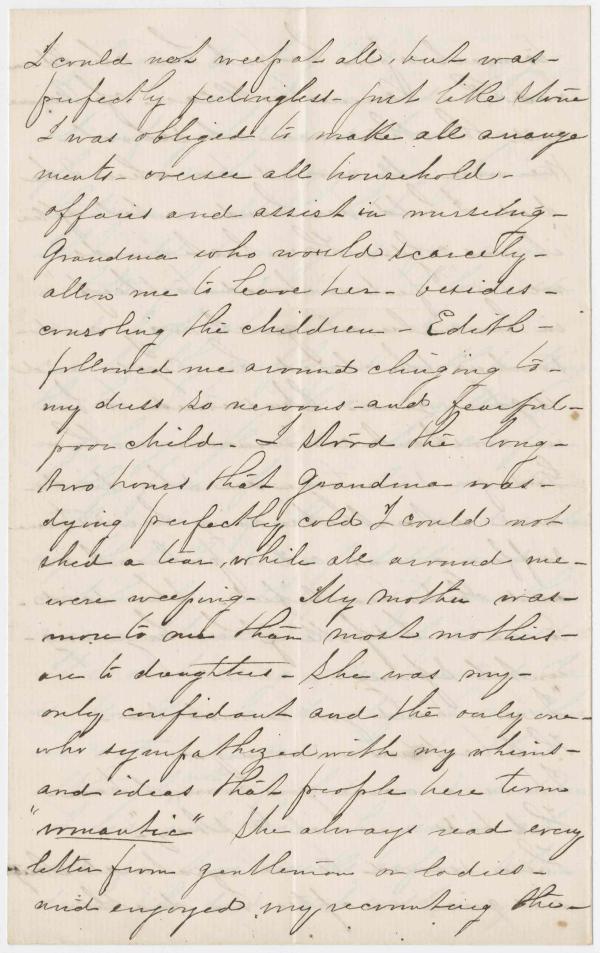 I could not weep at all, but was-
perfectly feelingless- just like stone
I was obliged to make all arrange
ments- oversee all household-
affairs and assist in nursing-
Grandma who would scarcely-
allow me to leave her- besides-
consoling the children- Edith-
followed me around clinging to-
my dress so nervous-and fearful-
poor child- I stood the long-
two hours that Grandma was-
dying perfectly cold I could not
shed a tear, while all around me-
were weeping- My mother was-
more to me than most mothers-
are to daughters- She was my-
only confidant and the only one-
who sympathized with my whims-
and ideas that people here term
"romantic" She always read every
letter from gentlemen or ladies-
and enjoyed my recounting the-